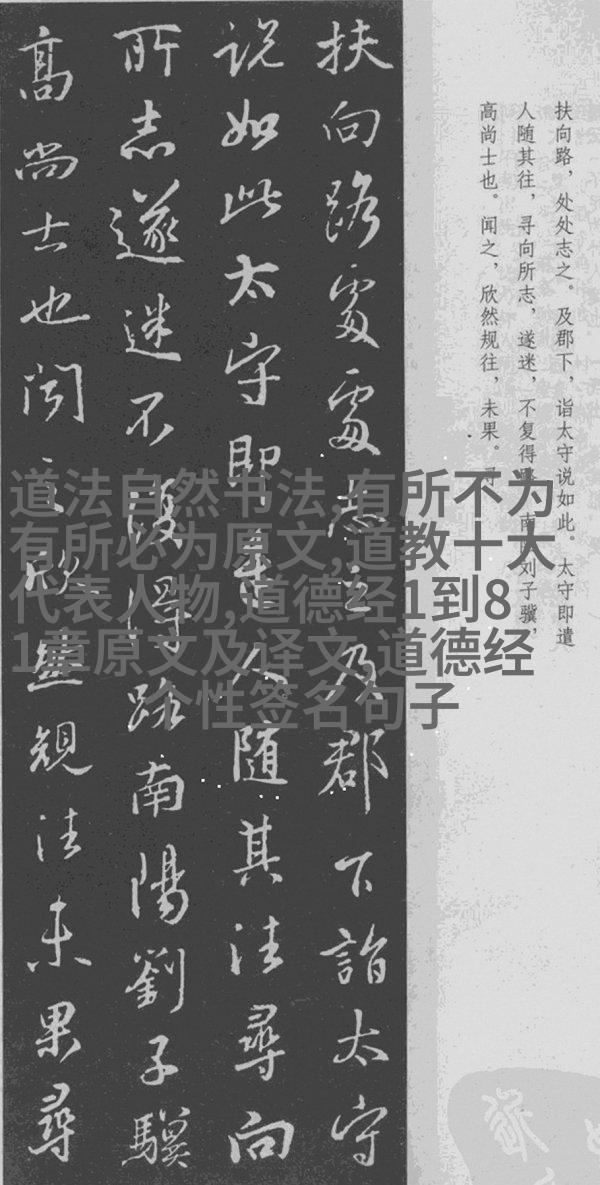 扶向路，处处志之。及郡下，诣太守说如此。太守即遣
人随其往，寻向所志，遂迷，不复得路。南阳刘子骥，
高尚士也。闻之，欣然规往，未果。寻
扶向路處處志之及郡下詣太守
説如此太守即遣人随其往尋向
所志遂迷不復得路南陽劉子驥
高尚士也聞之欣然規往未果尋
道法自然书法,有所不为
有所必为原文,道教十大
代表人物,道德经1到8
1章原文及译文,道德经
个性签名句子